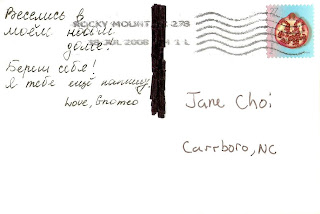 Веселись в
моём новом
доме.
Береги себя!
Я тебе ещё напишу.
Love, Gnomeo
ROCKY MOUNT NC 278
JUL 2008 PM 1 L
Jane Choi
Carrboro, NC